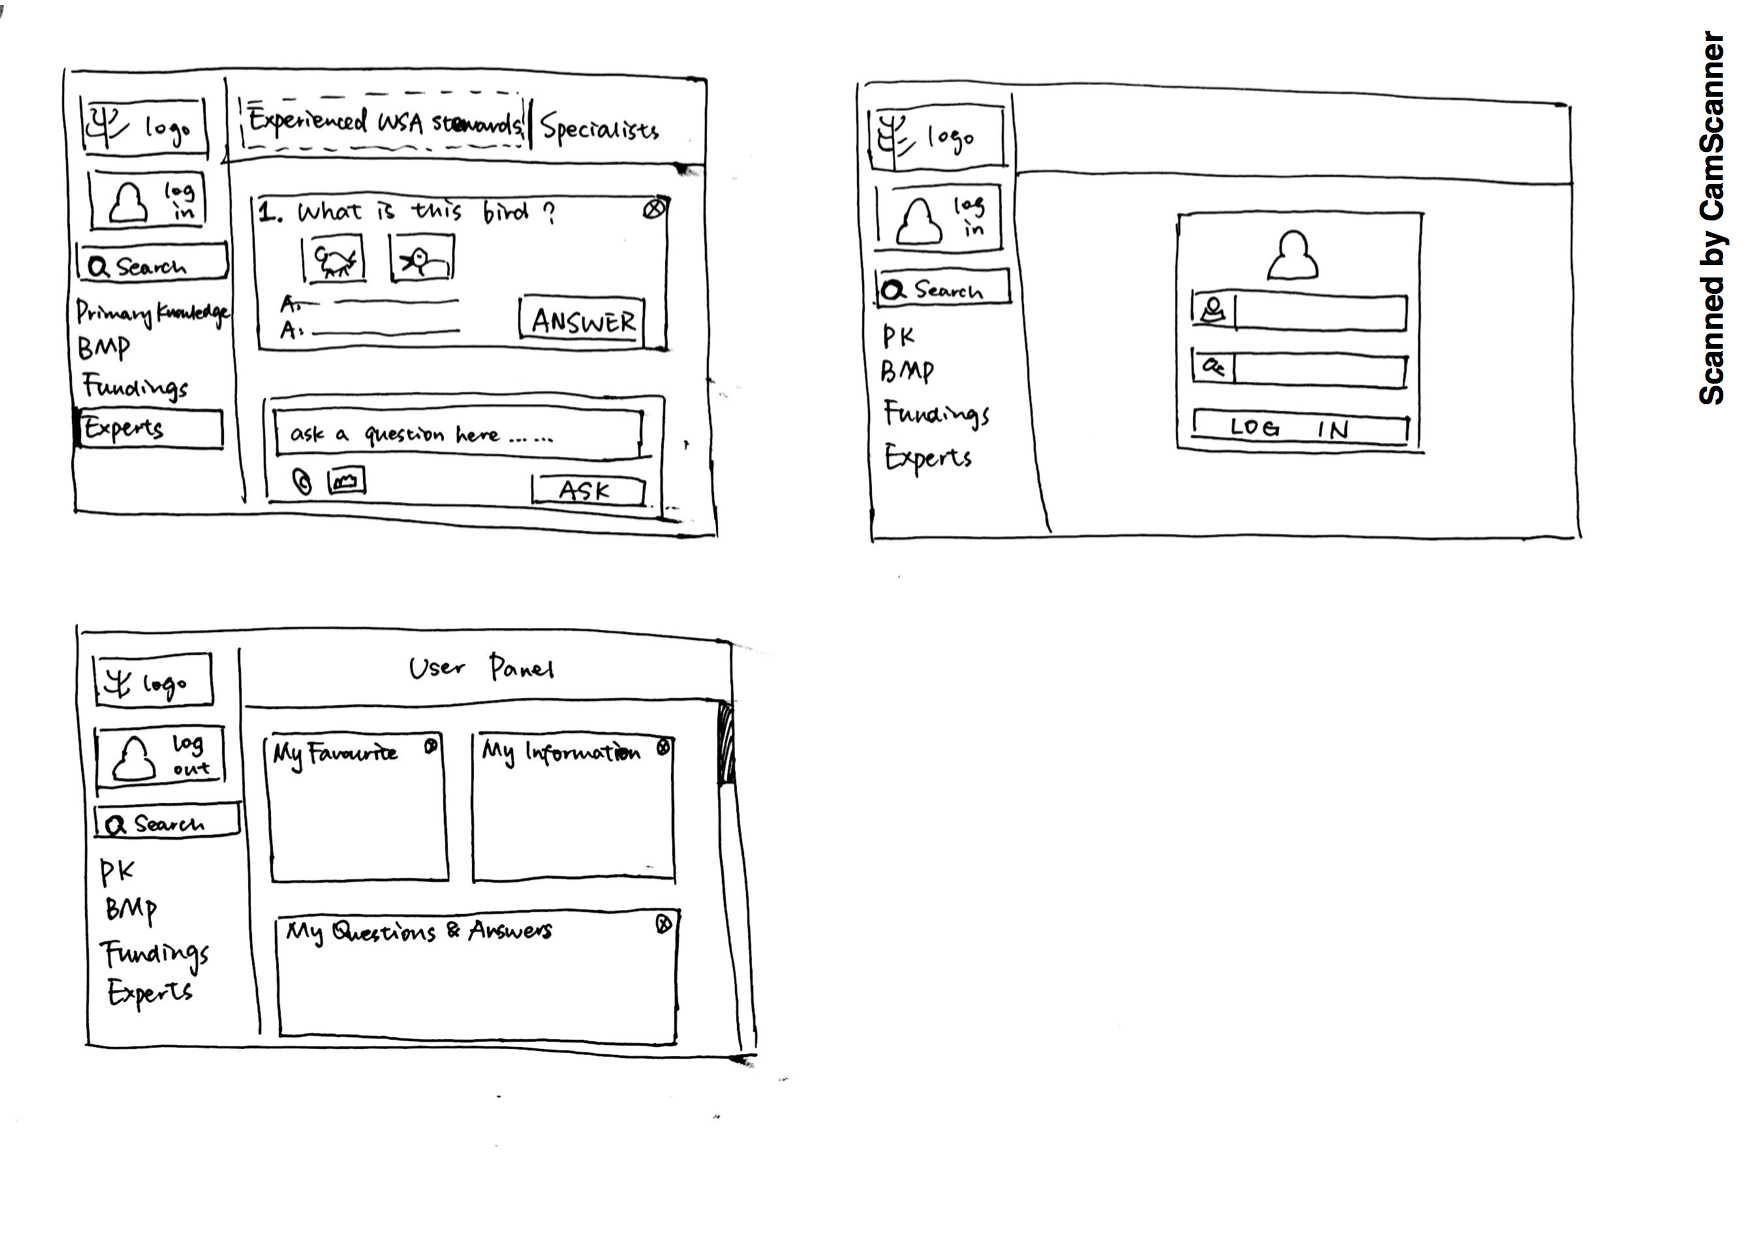 logo
log
in
Search
Primary Knowledge
BMP
Fundings
Experts
Experienced WSA stewards
Specialists
1. What is this bird?
A:
A:
ANSWER
ask a question here ......
ASK
logo
log
in
Search
PK
BMP
Fundings
Experts
LOG IN
logo
log
out
Search
PK
BMP
Fundings
Experts
User Panel
My Favourite
My Information
My Questions & Answers
Scanned by CamScanner